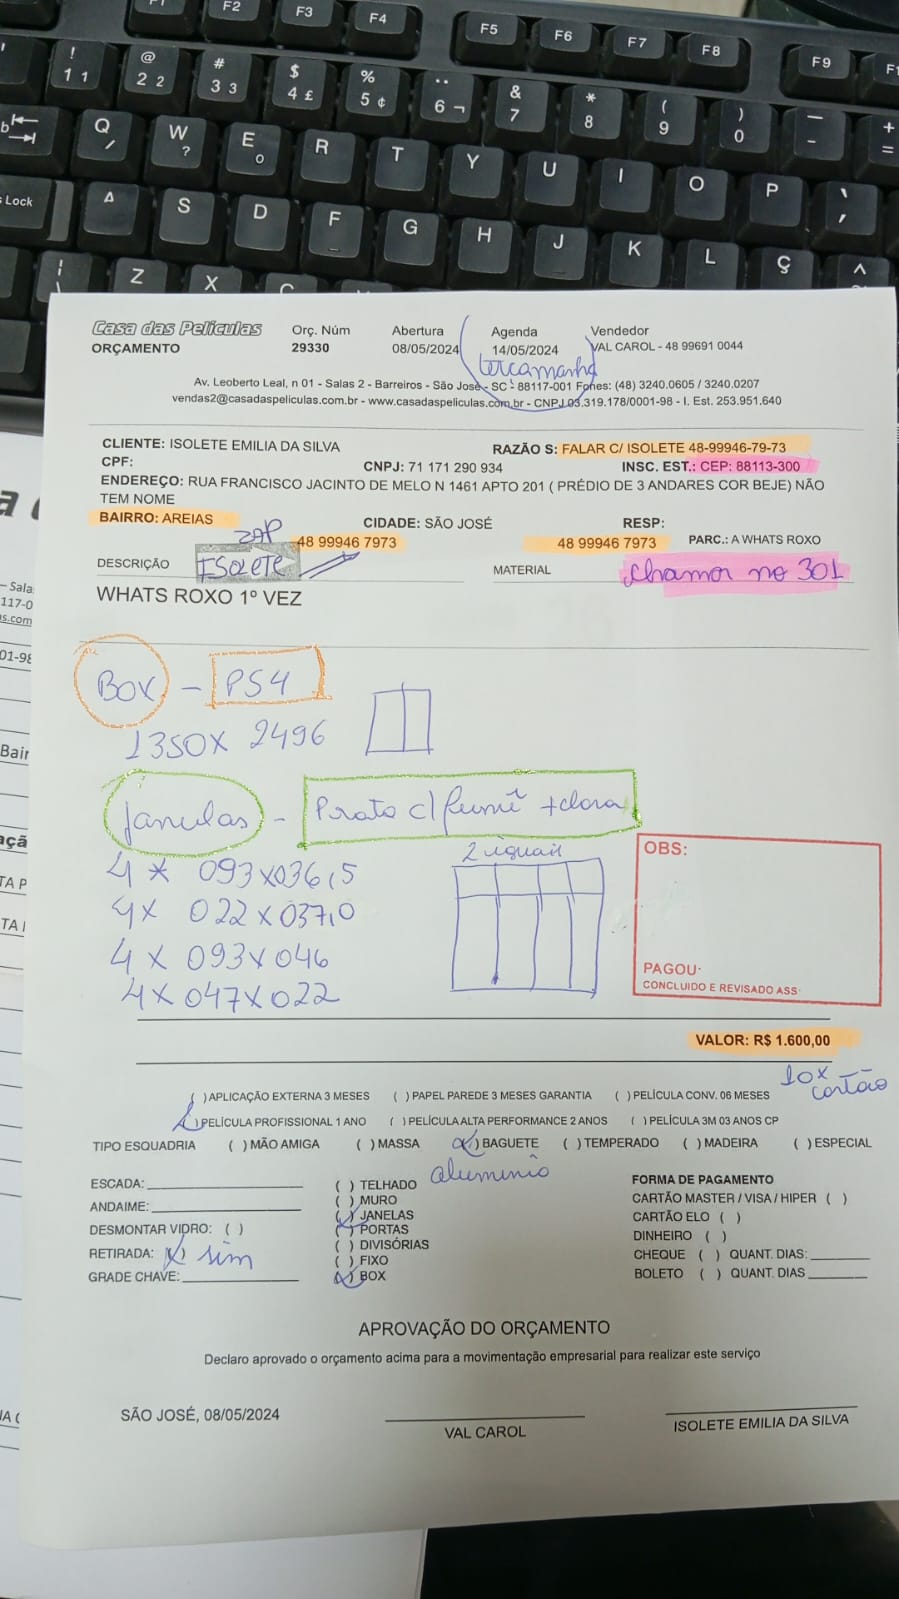 F2 F3 F4 F5 F6 F7 F8 F9
! 1 1 @ 2 2 # 3 3 $ 4 £ % 5 ¢ ¨ 6 ¬ & 7 * 8 ( 9 ) 0 _ - + =
Q / W ? E ° R T Y U I O P ` ´
Lock A S D F G H J K L Ç ^
Z X C
Casa das Películas
ORÇAMENTO
Orç. Núm
29330
Abertura
08/05/2024
Agenda
14/05/2024
Vendedor
VAL CAROL - 48 99691 0044
Av. Leoberto Leal, n 01 - Salas 2 - Barreiros - São José - SC - 88117-001 Fones: (48) 3240.0605 / 3240.0207
vendas2@casadaspeliculas.com.br - www.casadaspeliculas.com.br - CNPJ 03.319.178/0001-98 - I. Est. 253.951.640
CLIENTE: ISOLETE EMILIA DA SILVA RAZÃO S: FALAR C/ ISOLETE 48-99946-79-73
CPF: CNPJ: 71 171 290 934 INSC. EST.: CEP: 88113-300
ENDEREÇO: RUA FRANCISCO JACINTO DE MELO N 1461 APTO 201 ( PRÉDIO DE 3 ANDARES COR BEJE) NÃO
TEM NOME
BAIRRO: AREIAS CIDADE: SÃO JOSÉ RESP:
ZAP 48 99946 7973 48 99946 7973 PARC.: A WHATS ROXO
DESCRIÇÃO ISOLETE MATERIAL chamar no 301
WHATS ROXO 1º VEZ
BOX - PS4
1350X 2496
Janelas - Prata c/ fumê + clara
4 * 093X036,5 2 iguais
4X 022X037,0
4 X 093X046
4X047X022
OBS:
PAGOU:
CONCLUIDO E REVISADO ASS:
VALOR: R$ 1.600,00
10X
cartão
( )APLICAÇÃO EXTERNA 3 MESES ( ) PAPEL PAREDE 3 MESES GARANTIA ( )PELÍCULA CONV. 06 MESES
(X)PELÍCULA PROFISSIONAL 1 ANO ( )PELÍCULA ALTA PERFORMANCE 2 ANOS ( )PELÍCULA 3M 03 ANOS CP
TIPO ESQUADRIA ( ) MÃO AMIGA ( ) MASSA (X)BAGUETE ( ) TEMPERADO ( ) MADEIRA ( ) ESPECIAL
aluminio
ESCADA:
ANDAIME:
DESMONTAR VIDRO: ( )
RETIRADA: (X) sim
GRADE CHAVE:
( ) TELHADO
( ) MURO
(X) JANELAS
( ) PORTAS
( ) DIVISÓRIAS
( ) FIXO
(X) BOX
FORMA DE PAGAMENTO
CARTÃO MASTER / VISA / HIPER ( )
CARTÃO ELO ( )
DINHEIRO ( )
CHEQUE ( ) QUANT. DIAS:
BOLETO ( ) QUANT. DIAS
APROVAÇÃO DO ORÇAMENTO
Declaro aprovado o orçamento acima para a movimentação empresarial para realizar este serviço
SÃO JOSÉ, 08/05/2024
VAL CAROL
ISOLETE EMILIA DA SILVA